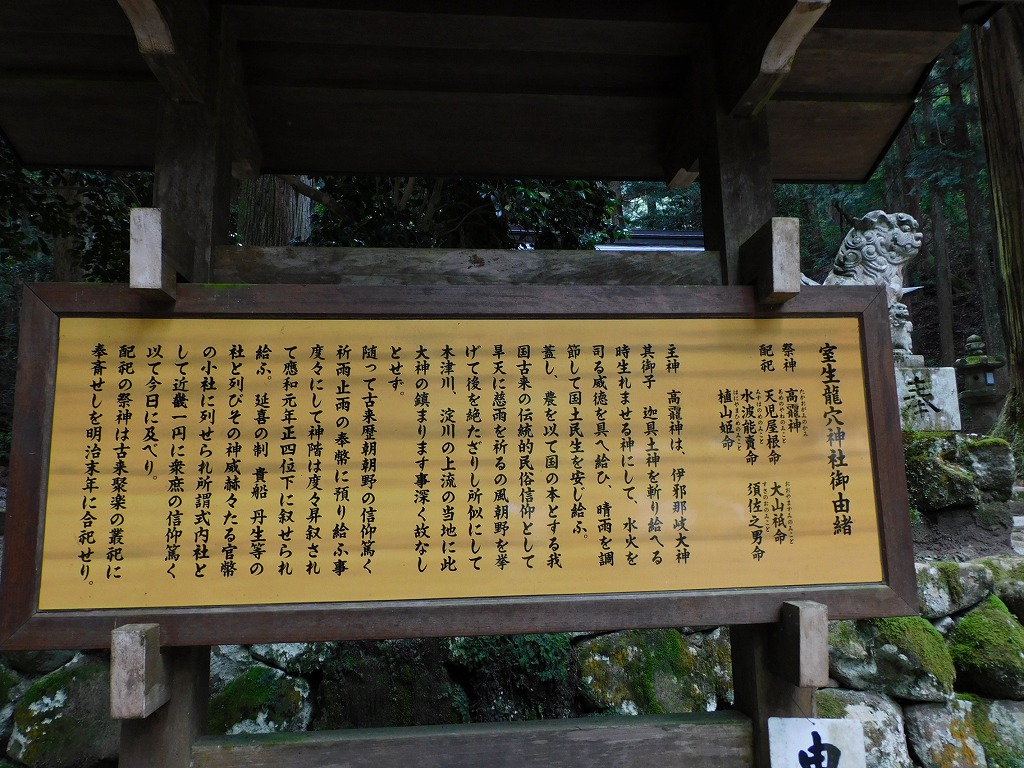 室生龍穴神社御由緒
祭神 高龗神
たかおかみのかみ
大山祇命
おおやまずみのみこと
配祀 天児屋根命
あめのこやねのみこと
須佐之男命
すさのおのみこと
水波能賣命
みずはのめのみこと
植山姫命
はにやまひめのみこと
主神 高龗神は、伊邪那岐大神
其御子 迦具土神を斬り給へる
時生れませる神にして、水火を
司る威徳を具へ給ひ、晴雨を調
節して国土民生を安じ給ふ。
蓋し、農を以て国の本とする我
国古来の伝統的民俗信仰として
旱天に慈雨を祈るの風朝野を挙
げて後を絶たざりし所似にして
木津川、淀川の上流の当地に此
大神の鎮まります事深く故なし
とせず。
随って古来歴朝朝野の信仰篤く
祈雨止雨の奉幣に預り給ふ事
度々にして神階は度々昇叙され
て應和元年正四位下に叙せられ
給ふ。延喜の制 貴船 丹生等の
社と列びその神威赫々たる官幣
の小社に列せられ所謂式内社と
して近畿一円に衆庶の信仰篤く
以て今日に及べり。
配祀の祭神は古来聚楽の叢祀に
奉斎せしを明治末年に合祀せり。
奉